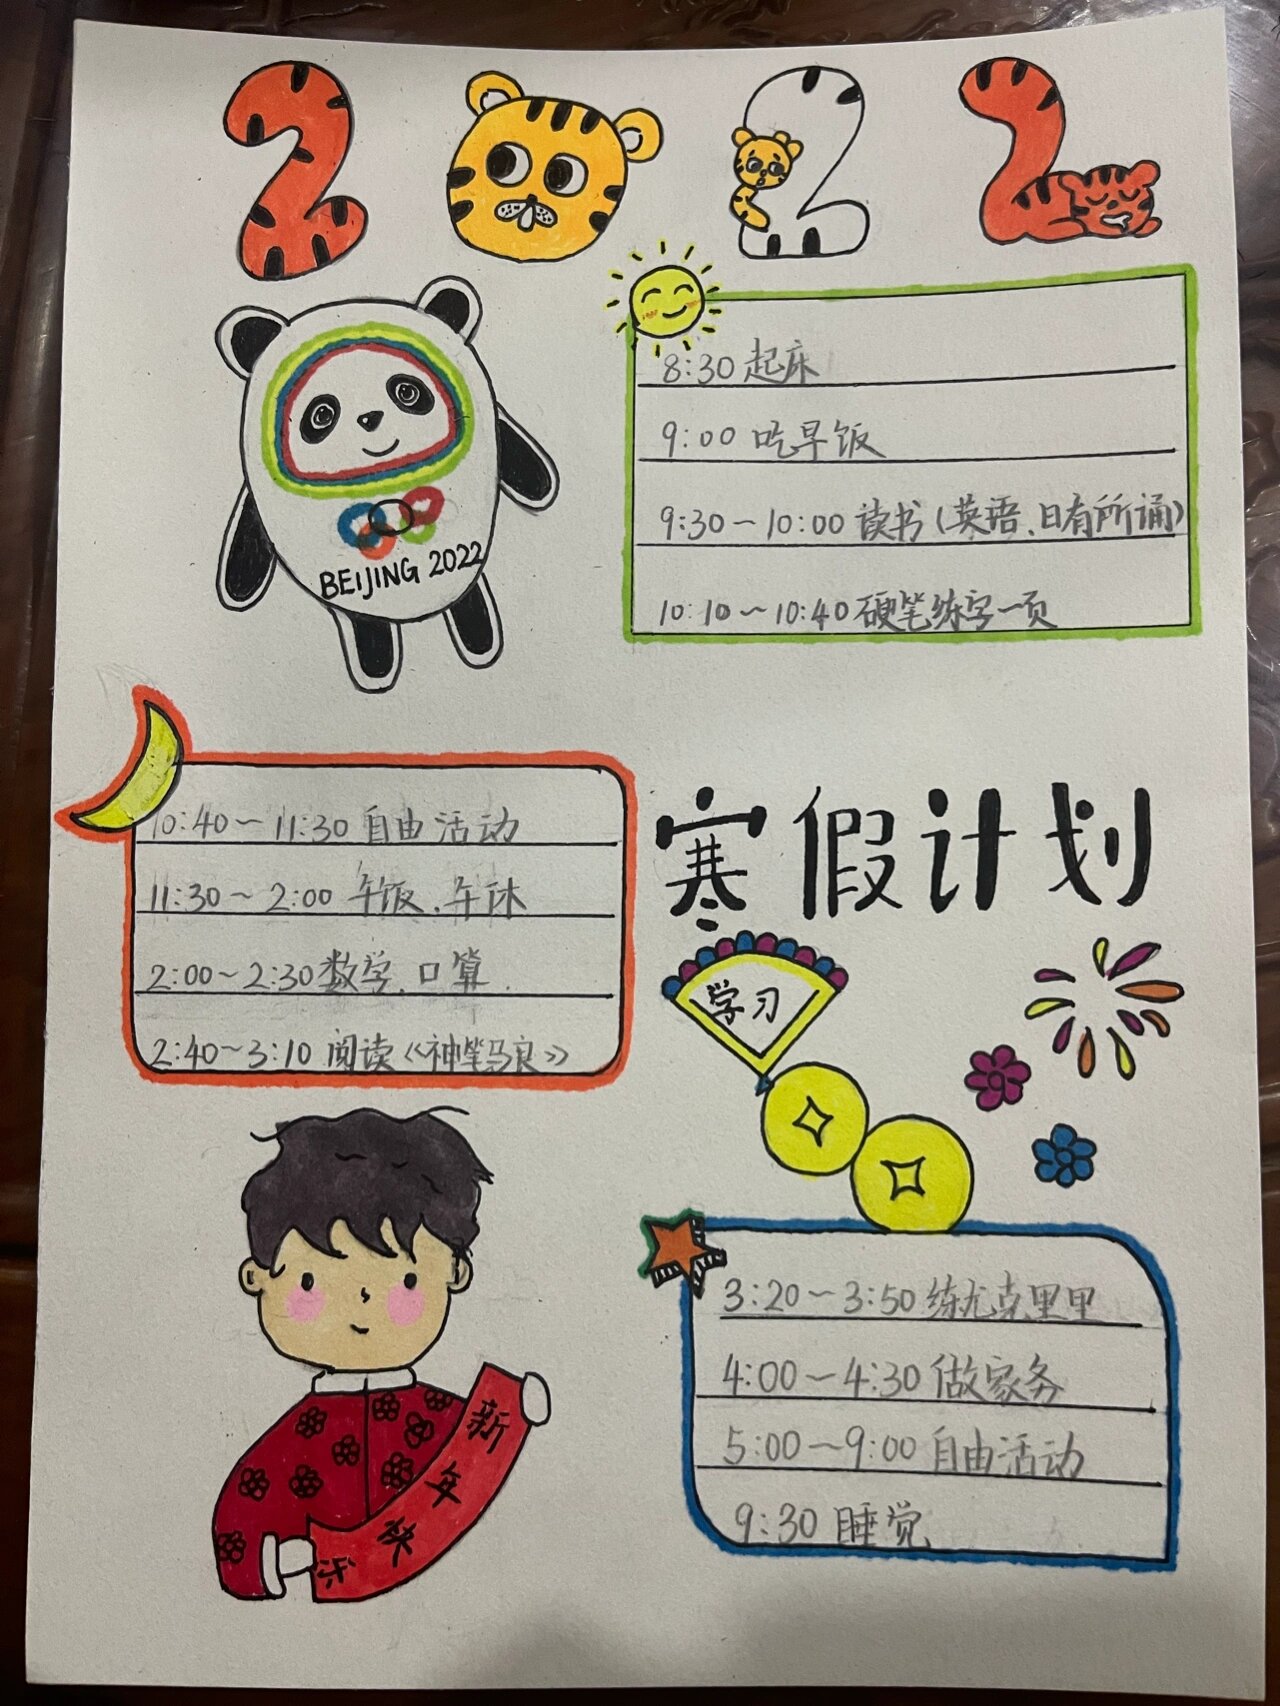 2022
BEIJING 2022
8:30 起床
9:00 吃早饭
9:30～10:00 读书(英语、日有所诵)
10:10～10:40 硬笔练字一页
10:40～11:30 自由活动
11:30～2:00 午饭、午休
2:00～2:30 数学、口算
2:40～3:10 阅读《神笔马良》
寒假计划
学习
3:20～3:50 练尤克里里
4:00～4:30 做家务
5:00～9:00 自由活动
9:30 睡觉
新年快乐